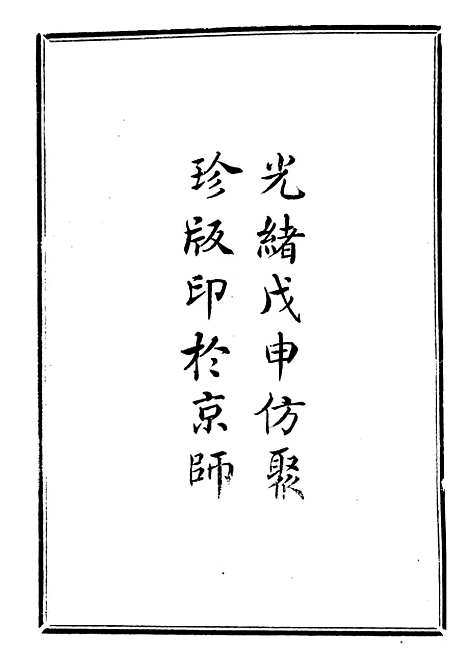 光緒戊申仿聚
珍版印於京師